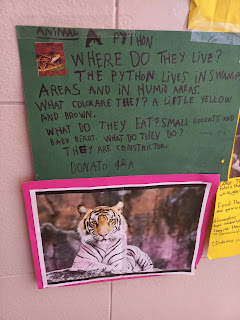 ANIMAL A PYTHON
WHERE DO THEY LIVE?
THE PYTHON LIVES IN SWAMP
AREAS AND IN HUMID AREAS.
WHAT COLOR ARE THEY? A LITTLE YELLOW
AND BROWN.
WHAT DO THEY EAT? SMALL RODENTS AND
BABY BIRDS. WHAT DO THEY DO?
THEY ARE CONSTRICTOR.
DONATO